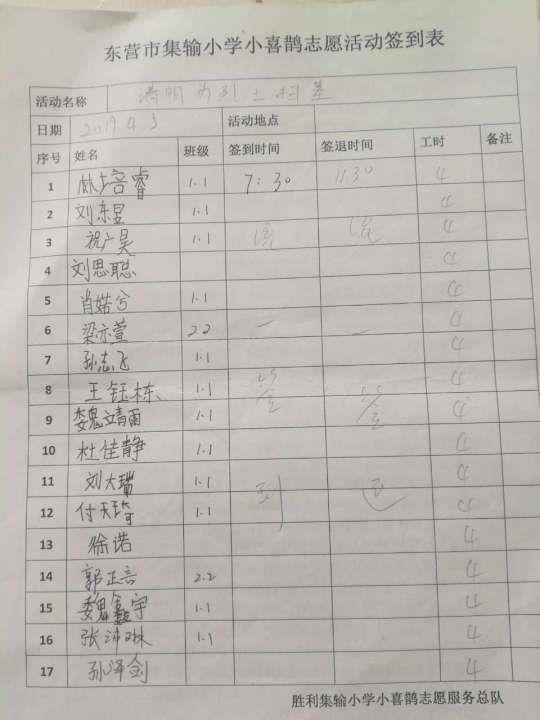 东营市集输小学小喜鹊志愿活动签到表
活动名称 清明为烈士扫墓
日期 2019.4.3 活动地点
序号 姓名 班级 签到时间 签退时间 工时 备注
1 林培睿 1.1 7:30 11:30 4
2 刘东昱 1.1 4
3 祝广昊 1.1 统 统 4
4 刘思聪 4
5 肖婼兮 1.1 4
6 梁亦萱 2.2 一 一 4
7 孙志飞 1.1 4
8 王钰栋 1.1 签 签 4
9 魏靖雨 1.1 4
10 杜佳静 1.1 4
11 刘大瑞 1.1 到 退 4
12 付天琦 1.1 4
13 徐诺 4
14 郭正言 2.2 4
15 魏鑫宇 1.1 4
16 张沛琳 1.1 4
17 孙泽剑 4
胜利集输小学小喜鹊志愿服务总队